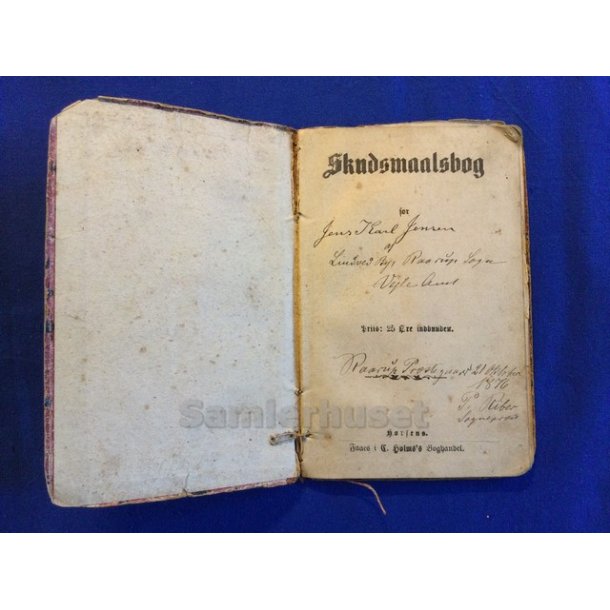 Skudsmaalsbog
for
Jens Karl Jensen
af
Lindved By, Raarup Sogn
Vejle Amt
Priis: 25 Øre indbunden.
Raarup Præstegaard 21 Oktober
1876
Riber
Sognepræst
Samlerhuset
Horsens.
Faaes i C. Holm's Boghandel.